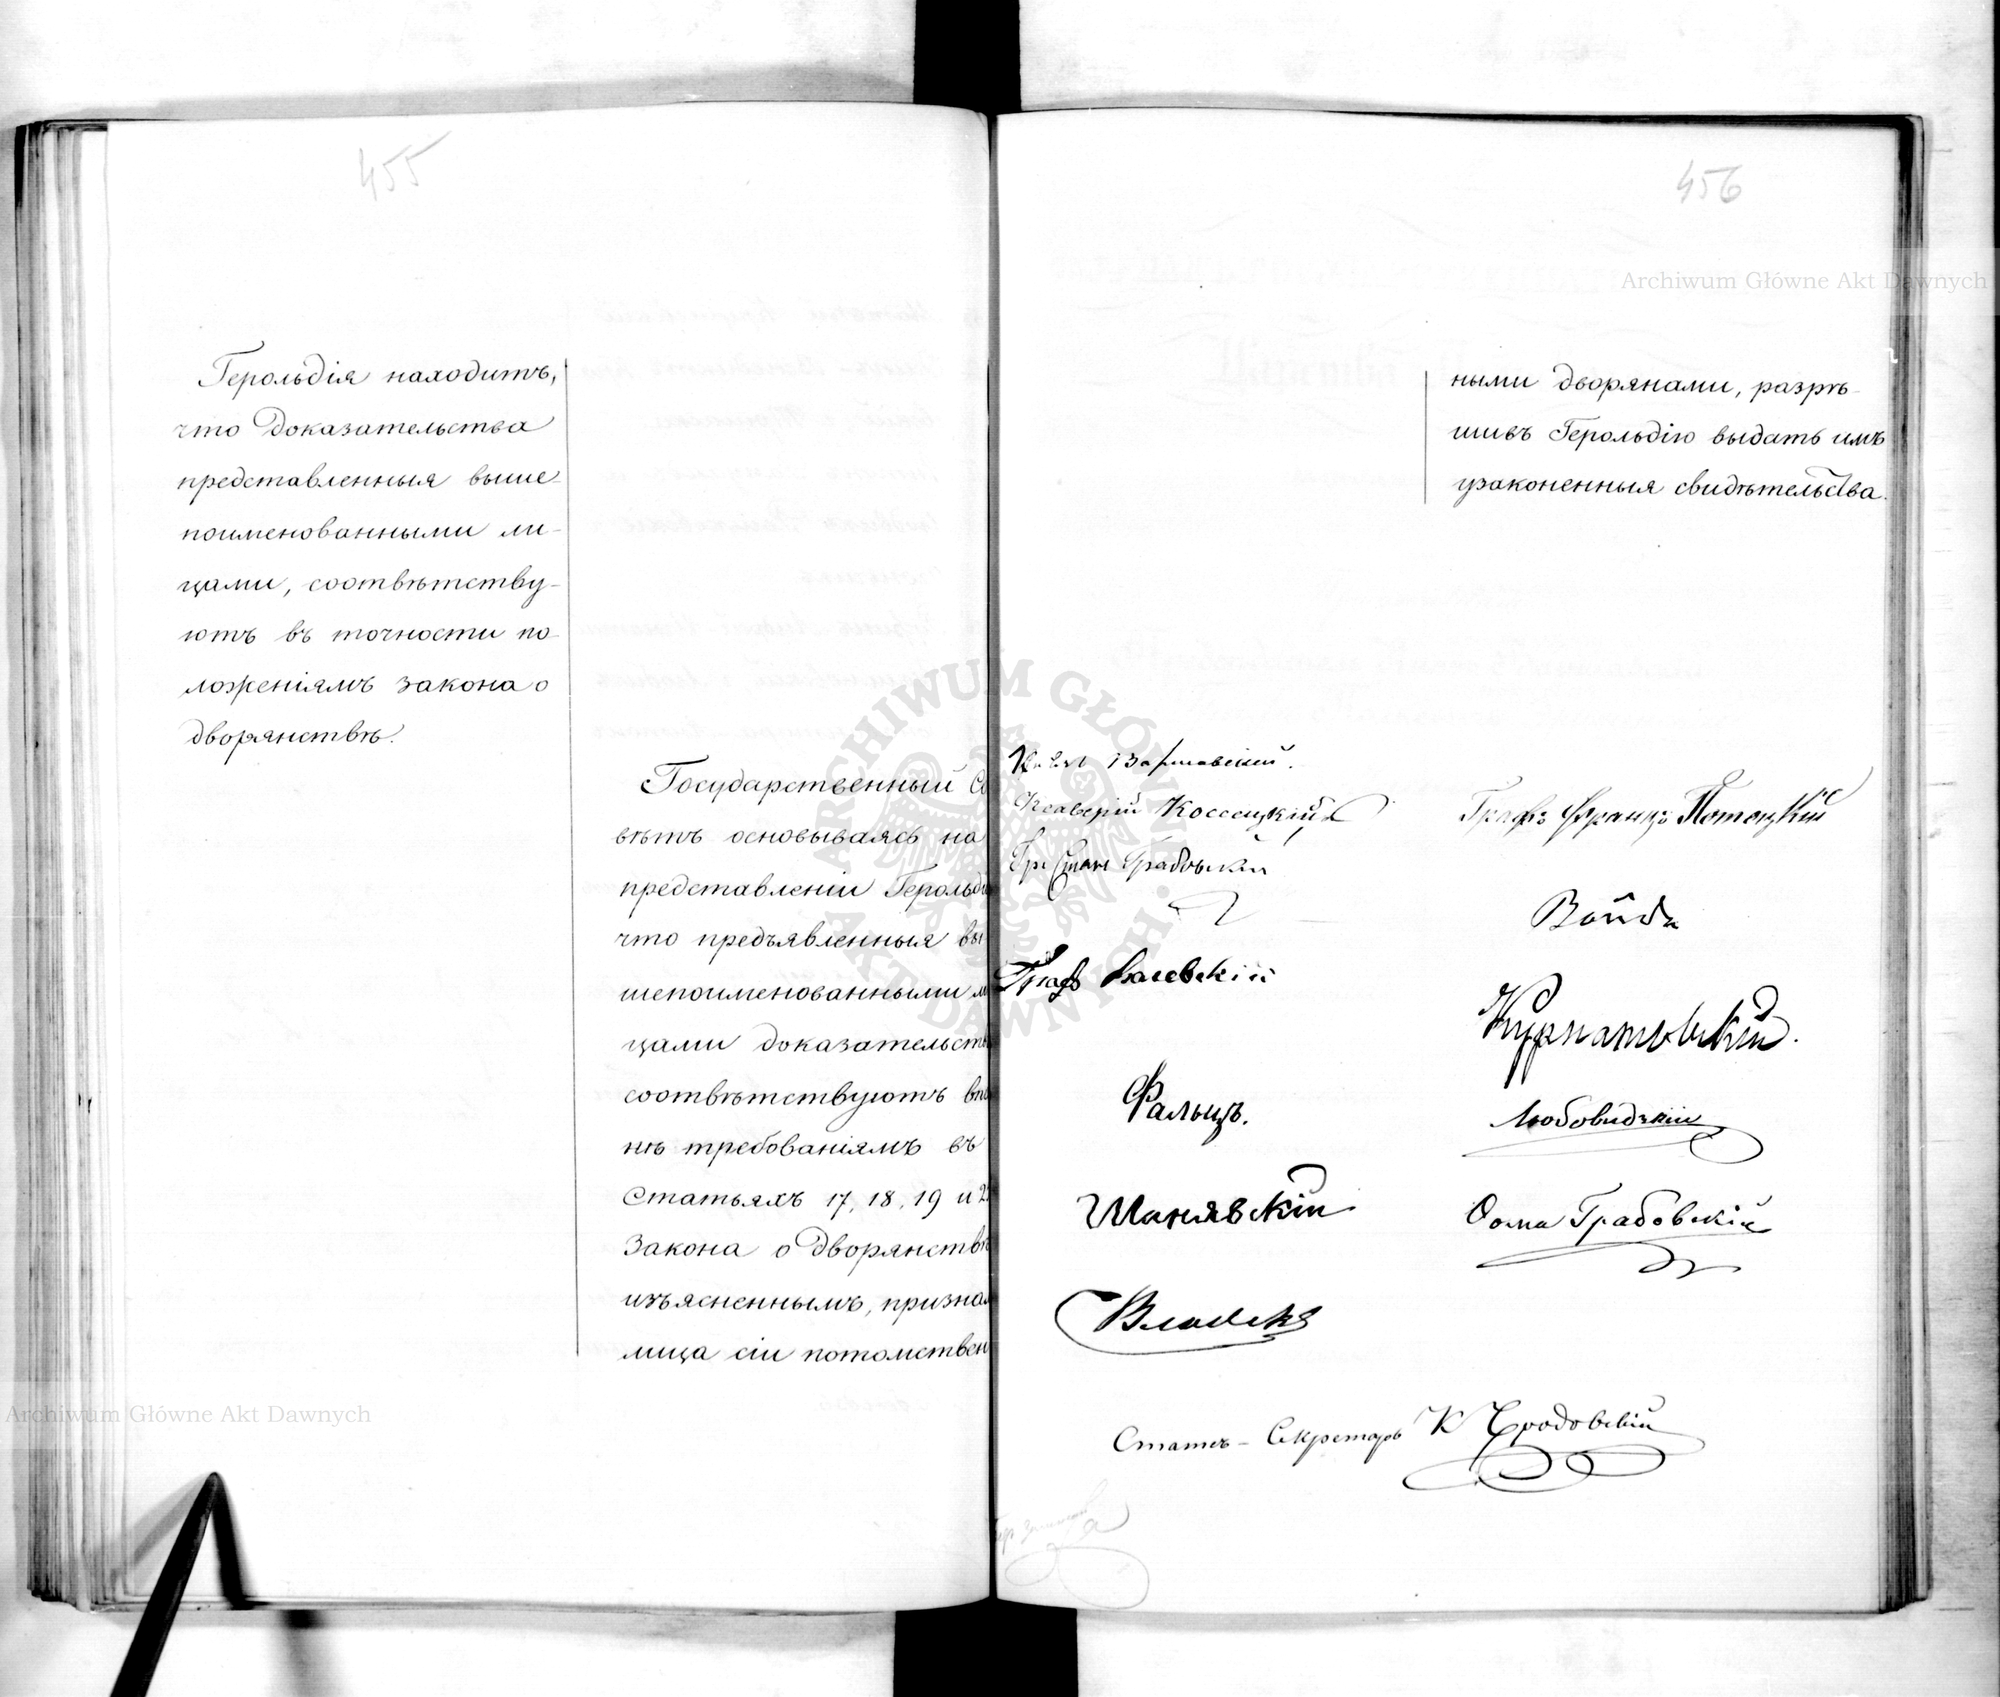 455
Герольдія находитъ,
что доказательства
представленныя выше-
поименованными ли-
цами, соотвѣтству-
ютъ въ точности по-
ложеніямъ закона о
дворянствѣ.
Государственный Со
вѣтъ основываясь на
представленіи Герольді
что предъявленныя вы
шепоименованными ли
цами доказательств
соотвѣтствуютъ впо
нѣ требованіямъ въ
Статьяхъ 17, 18, 19 и 2
Закона о дворянствѣ
изъясненнымъ, призна
лица сіи потомствен
456
ными дворянами, разрѣ-
шивъ Герольдію выдать имъ
узаконенныя свидѣтельства.
Варшавскій.
Ксаверій Коссецкій
Графъ Францъ Потоцкій
Гр: Стан: Грабовскій
Войда
Графъ Валевскій
Курнатовскій.
Фальцъ.
Любовидзкій
Шанявскій
Ѳома Грабовскій
Статсъ-Секретарь К
Archiwum Główne Akt Dawnych
Archiwum Główne Akt Dawnych
ARCHIWUM GŁÓWNE AKT DAWNYCH